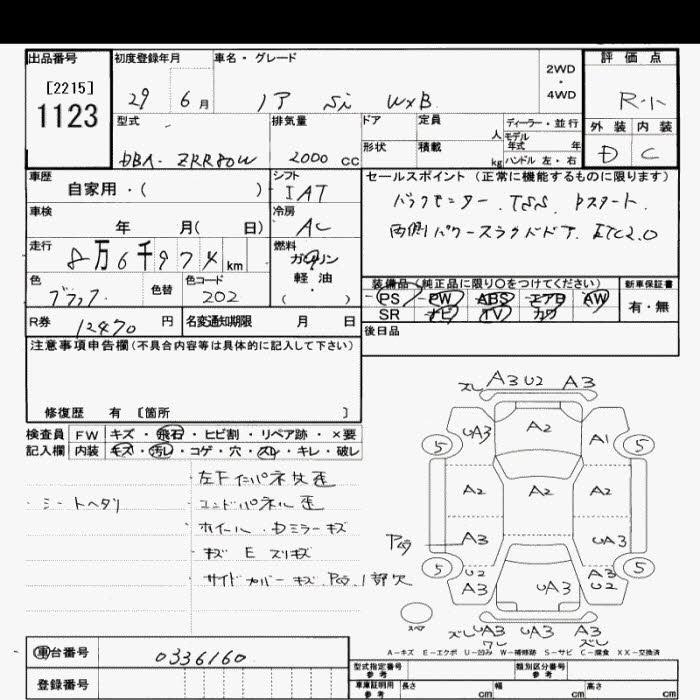 出品番号 初度登録年月 車名・グレード 2WD・4WD 評価点
[2215]
1123
29 6月 ノア Si W×B R-1
型式 排気量 ドア 定員 人 ディーラー・並行 外装 内装
モデル年式 年
形状 積載 kg ハンドル 左・右
DBA-ZRR80W 2000 CC D C
車歴 シフト セールスポイント(正常に機能するものに限ります)
自家用・( ) IAT
バックモニター. TSS. Pスタート.
車検 冷房
年 月( 日) AC
両側パワースライドドア. ETC2.0
走行 燃料
8万6千974km ガソリン
軽油
・
( )
色 色替 色コード
ブラック 202
装備品(純正品に限り○をつけてください) 新車保証書
PS PW ABS エアB AW 有・無
SR ナビ TV カワ
R券 12470円 名変通知期限 月 日
後日品
注意事項申告欄(不具合内容等は具体的に記入して下さい)
修復歴 有 〔箇所 〕
検査員 FW キズ・飛石・ヒビ割・リペア跡・×要
記入欄 内装 キズ・汚レ・コゲ・穴・スレ・キレ・破レ
左F インパネ 歪
・シートヘタリ ・エンドパネル 歪
・ホイール・Dミラーキズ
・キズ E スリキズ
・サイドカバー キズ
スレ A3 U2 A3
UA3 A2 A1
5 5
A2 A2 A2
A3 UA3
5 5
U2 A3 UA3 A3 U2
スペア
スレ UA3 UA3 A3
スレ
A-キズ E-エクボ U-凹み W-補修跡 S-サビ C-腐食 XX-交換済
車台番号 0336160
登録番号
型式指定番号 参考 類別区分番号 参考
車庫証明用 参考 長さ cm 幅 cm 高さ cm